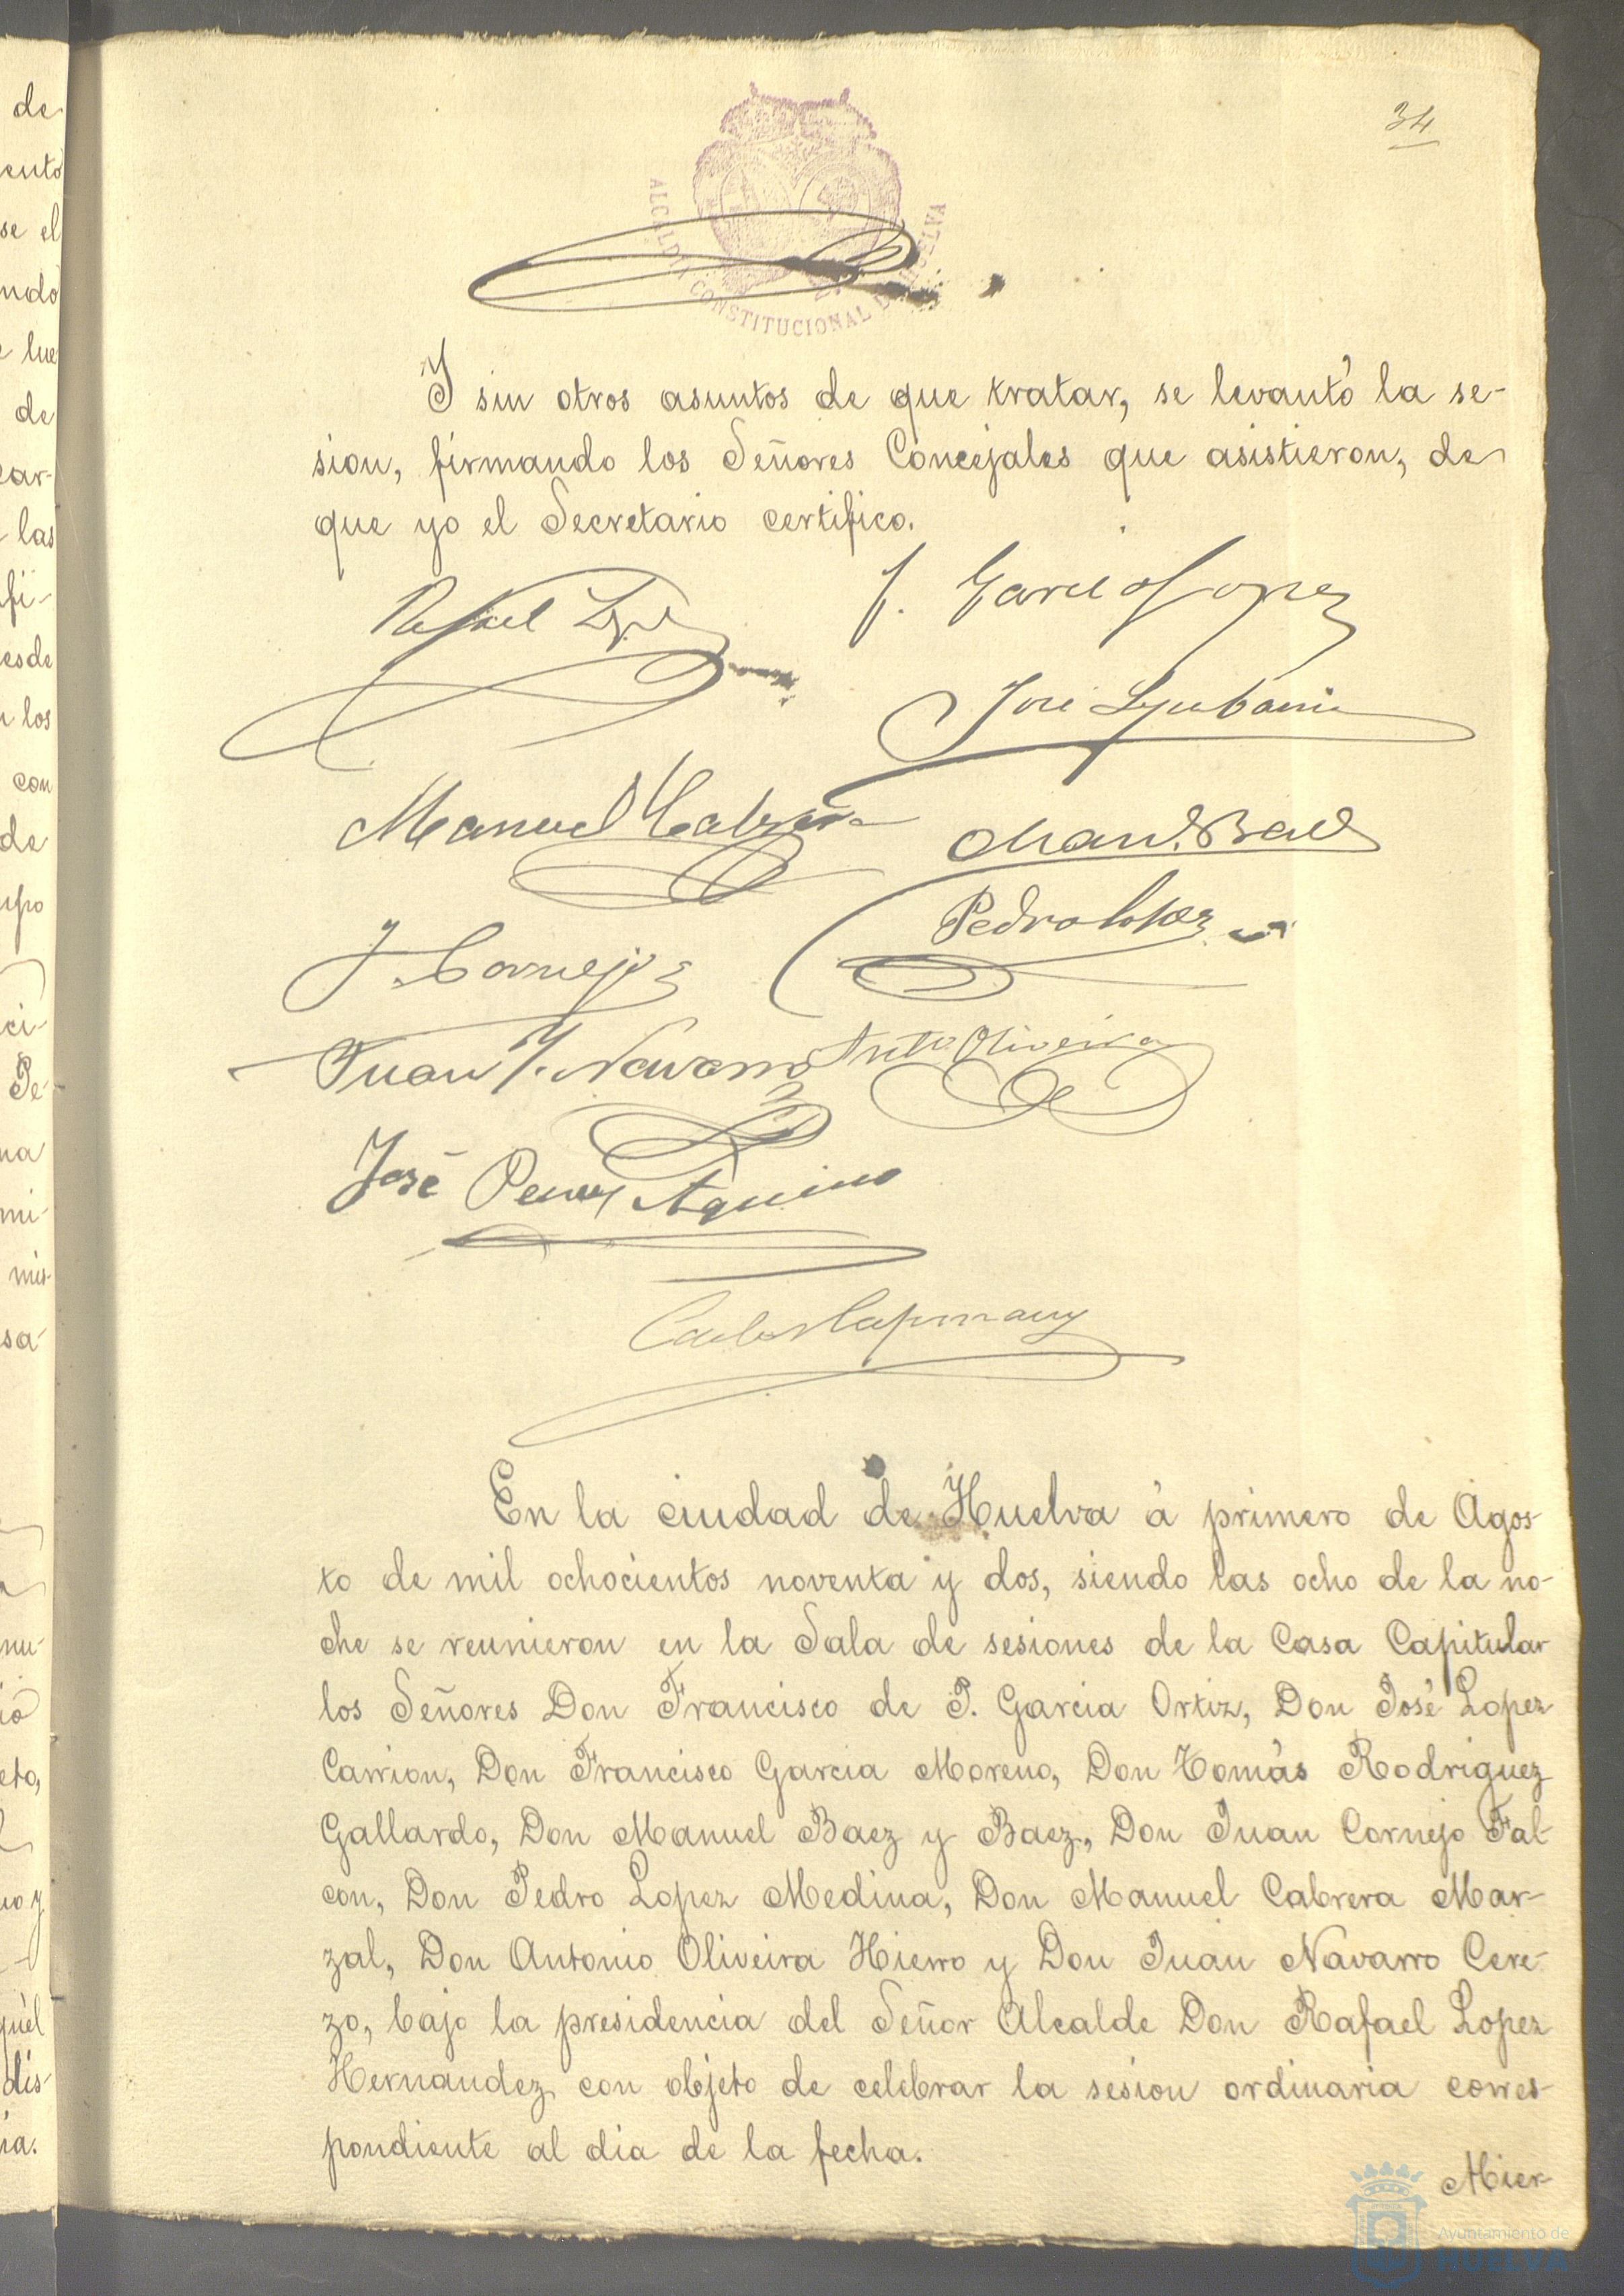 34
ALCALDIA CONSTITUCIONAL DE HUELVA
Y sin otros asuntos de que tratar, se levantó la se-
sion, firmando los Señores Concejales que asistieron, de
que yo el Secretario certifico.
Rafael Lopez
J. Garcia Lopez
José
Manuel Cabrera
Man.l Baez
Pedro Lopez
J. Cornejo
Juan J. Navarro
Ant.o Oliveira
José Perez Aquino
Carlos Capmany
En la ciudad de Huelva á primero de Agos-
to de mil ochocientos noventa y dos, siendo las ocho de la no-
che se reunieron en la Sala de sesiones de la Casa Capitular
los Señores Don Francisco de P. Garcia Ortiz, Don José Lopez
Carrion, Don Francisco Garcia Moreno, Don Tomás Rodriguez
Gallardo, Don Manuel Baez y Baez, Don Juan Cornejo Fal-
con, Don Pedro Lopez Medina, Don Manuel Cabrera Mar-
zal, Don Antonio Oliveira Hierro y Don Juan Navarro Cere-
zo, bajo la presidencia del Señor Alcalde Don Rafael Lopez
Hernandez con objeto de celebrar la sesion ordinaria corres-
pondiente al dia de la fecha.
Mier-
Ayuntamiento de
HUELVA